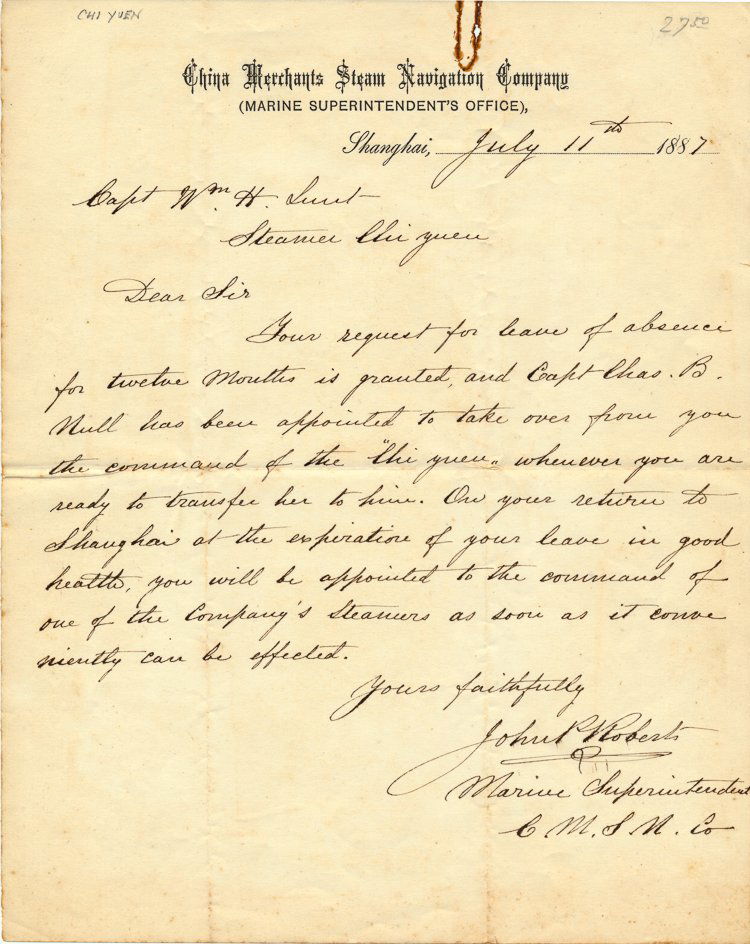 CHI YUEN
27 50
China Merchants Steam Navigation Company
(MARINE SUPERINTENDENT'S OFFICE),
Shanghai, July 11th 1887
Capt Wm H. Lunt
Steamer Chi yuen
Dear Sir
Your request for leave of absence
for twelve Months is granted, and Capt Chas. B.
Null has been appointed to take over from you
the command of the "Chi yuen" whenever you are
ready to transfer her to him. On your return to
Shanghai at the expiration of your leave in good
health, you will be appointed to the command of
one of the Company's Steamers as soon as it conve
niently can be effected.
Yours faithfully
John P Roberts
Marine Superintendent
C M. S N. Co